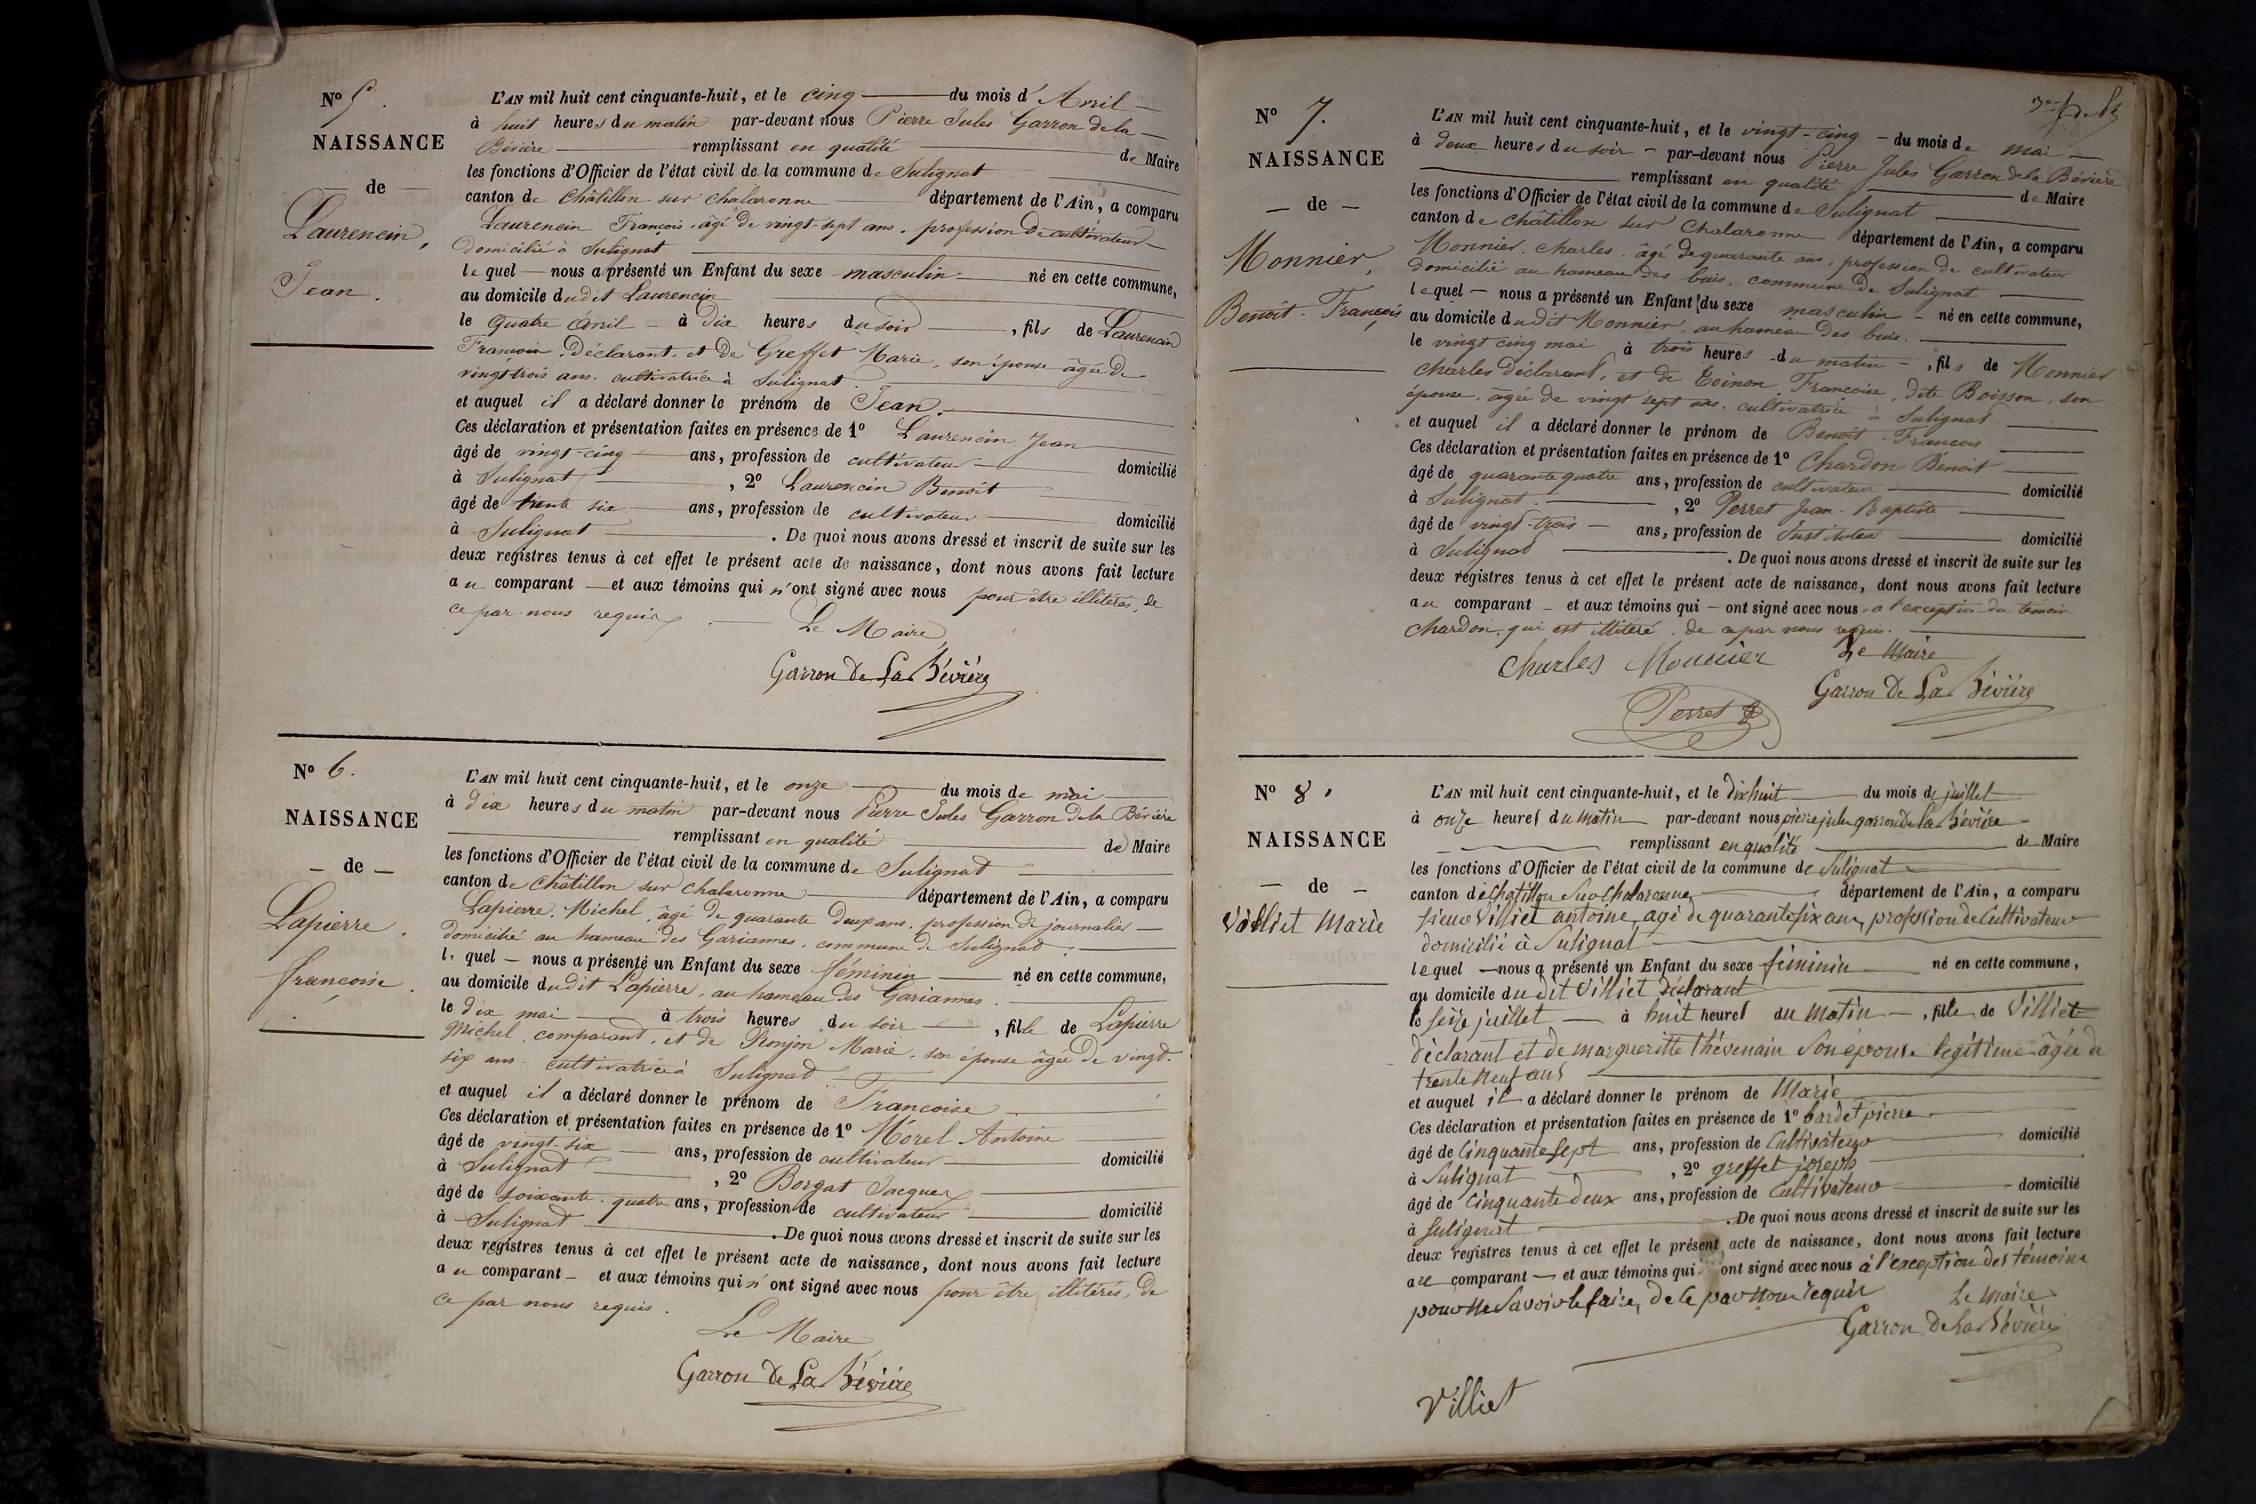 Nº 5.
NAISSANCE
de
Laurencin,
Jean.
L'AN mil huit cent cinquante-huit, et le cinq du mois d'Avril
à huit heures du matin par-devant nous Pierre Jules Garron de la
Bévière remplissant en qualité de Maire
les fonctions d'Officier de l'état civil de la commune de Sulignat
canton de Châtillon sur Chalaronne département de l'Ain, a comparu
Laurencin François, âgé de vingt-sept ans, profession de cultivateur
domicilié à Sulignat
lequel nous a présenté un Enfant du sexe masculin né en cette commune,
au domicile dudit Laurencin
le quatre avril à dix heures du soir, fils de Laurencin
François, déclarant, et de Greffet Marie, son épouse âgée de
vingt trois ans, cultivatrice à Sulignat.
et auquel il a déclaré donner le prénom de Jean.
Ces déclaration et présentation faites en présence de 1º Laurencin Jean
âgé de vingt-cinq ans, profession de cultivateur domicilié
à Sulignat, 2º Laurencin Benoît
âgé de trente six ans, profession de cultivateur domicilié
à Sulignat. De quoi nous avons dressé et inscrit de suite sur les
deux registres tenus à cet effet le présent acte de naissance, dont nous avons fait lecture
au comparant et aux témoins qui n'ont signé avec nous pour être illitérés, de
ce par nous requis
Le Maire,
Garron de La Bévière
Nº 6.
NAISSANCE
de
Lapierre.
françoise.
L'AN mil huit cent cinquante-huit, et le onze du mois de mai
à dix heures du matin par-devant nous Pierre Jules Garron de la Bévière
remplissant en qualité de Maire
les fonctions d'Officier de l'état civil de la commune de Sulignat
canton de Châtillon sur Chalaronne département de l'Ain, a comparu
Lapierre, Michel, âgé de quarante deux ans, profession de journalier
domicilié au hameau des Gariannes, commune de Sulignat.
lequel nous a présenté un Enfant du sexe féminin né en cette commune,
au domicile dudit Lapierre, au hameau des Gariannes.
le dix mai à trois heures du soir, fille de Lapierre
Michel, comparant, et de Ronjon Marie, son épouse âgée de vingt-
six ans cultivatrice à Sulignat
et auquel il a déclaré donner le prénom de Françoise
Ces déclaration et présentation faites en présence de 1º Morel Antoine
âgé de vingt-six ans, profession de cultivateur domicilié
à Sulignat, 2º Borgat Jacques
âgé de soixante-quatre ans, profession de cultivateur domicilié
à Sulignat. De quoi nous avons dressé et inscrit de suite sur les
deux registres tenus à cet effet le présent acte de naissance, dont nous avons fait lecture
au comparant et aux témoins qui n'ont signé avec nous pour être illitérés, de
ce par nous requis.
Le Maire
Garron de La Bévière
Nº 7.
NAISSANCE
de
Monnier,
Benoît-François
L'AN mil huit cent cinquante-huit, et le vingt-cinq du mois de mai
à deux heures du soir par-devant nous Pierre Jules Garron de la Bévière
remplissant en qualité de Maire
les fonctions d'Officier de l'état civil de la commune de Sulignat
canton de Châtillon sur Chalaronne département de l'Ain, a comparu
Monnier, Charles, âgé de quarante ans, profession de cultivateur
domicilié au hameau des buis, commune de Sulignat
lequel nous a présenté un Enfant du sexe masculin né en cette commune,
au domicile dudit Monnier, au hameau des buis.
le vingt cinq mai à trois heures du matin, fils de Monnier
Charles déclarant, et de Toinon, Françoise, dite Boisson, son
épouse, âgée de vingt sept ans, cultivatrice à Sulignat
et auquel il a déclaré donner le prénom de Benoît-François
Ces déclaration et présentation faites en présence de 1º Chardon Benoît
âgé de quarante quatre ans, profession de cultivateur domicilié
à Sulignat, 2º Perret Jean-Baptiste
âgé de vingt-trois ans, profession de Instituteur domicilié
à Sulignat. De quoi nous avons dressé et inscrit de suite sur les
deux registres tenus à cet effet le présent acte de naissance, dont nous avons fait lecture
au comparant et aux témoins qui ont signé avec nous, à l'exception du témoin
Chardon, qui est illitéré, de ce par nous requis.
Charles Monnier
Le Maire
Garron de La Bévière
Perret
Nº 8.
NAISSANCE
de
Villiet Marie
L'AN mil huit cent cinquante-huit, et le dix huit du mois de juillet
à onze heures du matin par-devant nous pierre jules garron de la Bévière
remplissant en qualité de Maire
les fonctions d'Officier de l'état civil de la commune de Sulignat
canton de Chatillon sur Chalaronne département de l'Ain, a comparu
sieur Villiet antoine, agé de quarante six ans, profession de Cultivateur
domicilié à Sulignat
lequel nous a présenté un Enfant du sexe féminin né en cette commune,
au domicile du dit Villiet déclarant
le seize juillet à huit heures du matin, fille de Villiet
déclarant et de margueritte Thévenain son épouse légitime âgée de
trente neuf ans
et auquel il a déclaré donner le prénom de Marie
Ces déclaration et présentation faites en présence de 1º bardet pierre
âgé de Cinquante sept ans, profession de Cultivateur domicilié
à Sulignat, 2º greffet joseph
âgé de Cinquante deux ans, profession de Cultivateur domicilié
à Sulignat. De quoi nous avons dressé et inscrit de suite sur les
deux registres tenus à cet effet le présent acte de naissance, dont nous avons fait lecture
au comparant et aux témoins qui ont signé avec nous à l'exception des témoins
pour ne savoir le faire, de ce par nous requis
Le Maire
Garron de La Bévière
Villiet